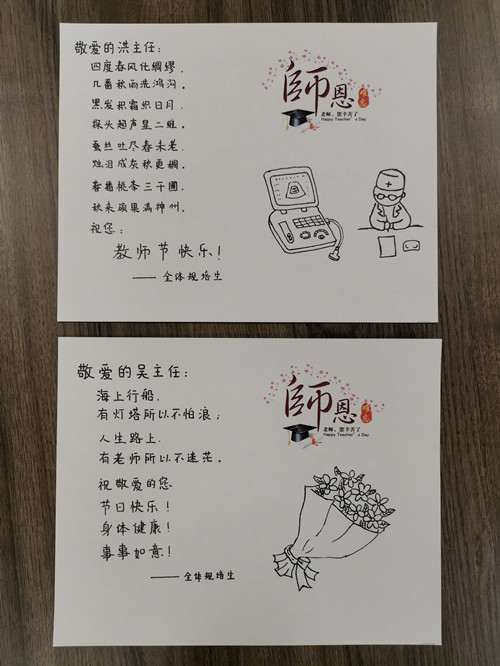 敬爱的洪主任：
四度春风化绸缪，
几番秋雨洗鸿沟。
黑发积霜织日月，
探头超声呈二维。
蚕丝吐尽春未老，
烛泪成灰秋更稠。
春播桃李三千圃，
秋来硕果满神州。
祝您：
教师节快乐！
—— 全体规培生
師恩
难忘
老师，您辛苦了
Happy Teacher's Day
敬爱的吴主任：
海上行船，
有灯塔所以不怕浪；
人生路上，
有老师所以不迷茫。
祝敬爱的您
节日快乐！
身体健康！
事事如意！
—— 全体规培生
師恩
难忘
老师，您辛苦了
Happy Teacher's Day